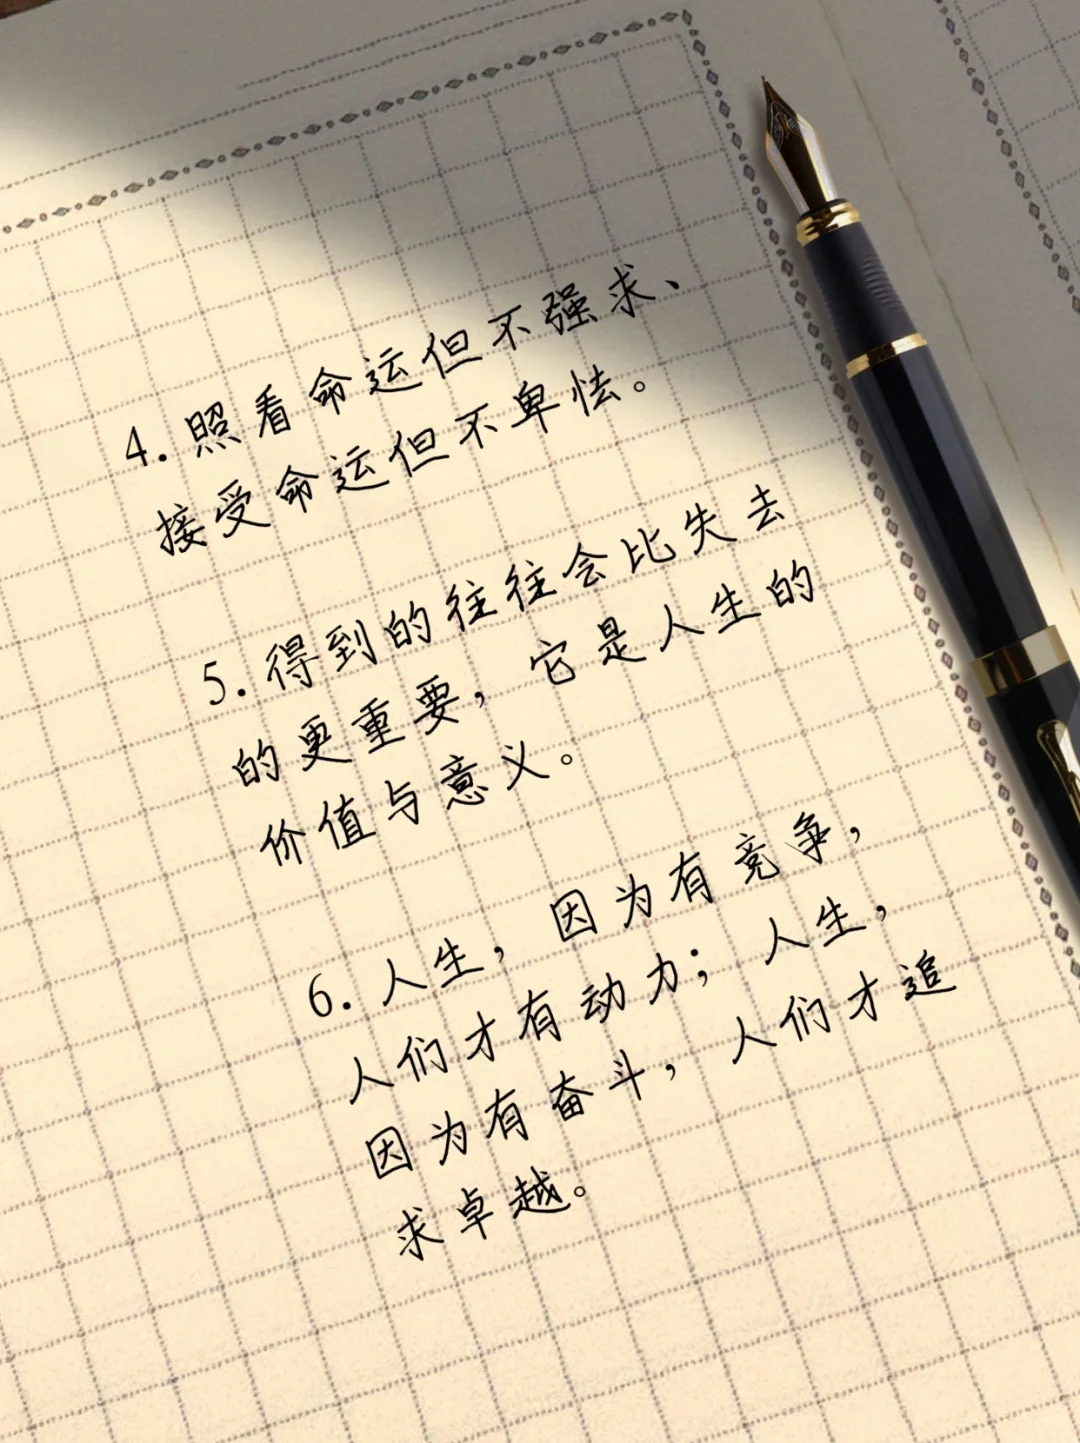 4.照看命运但不强求、
接受命运但不卑怯。
5.得到的往往会比失去
的更重要，它是人生的
价值与意义。
6.人生，因为有竞争，
人们才有动力；人生，
因为有奋斗，人们才追
求卓越。